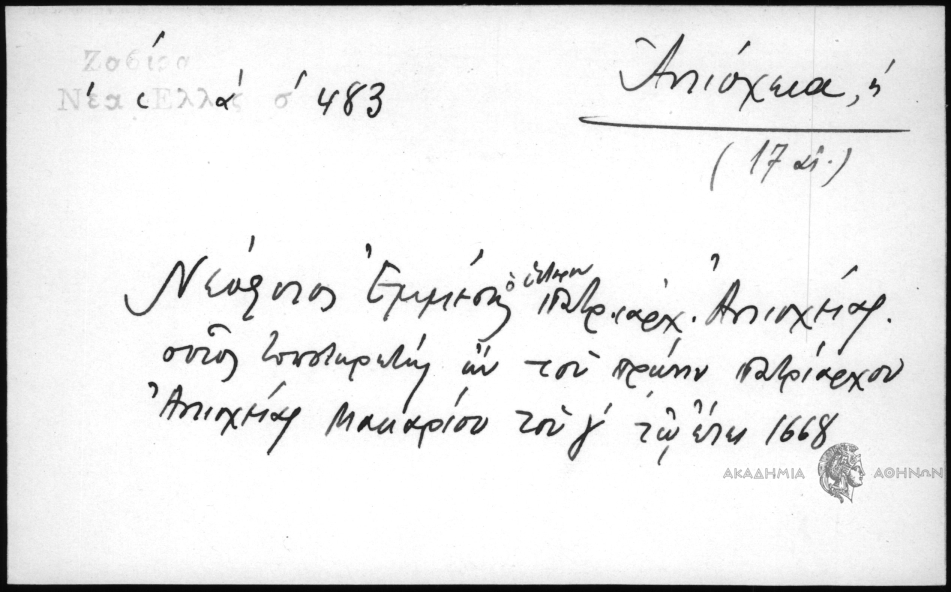 Ζαβίρα
Νέα Ἑλλάς σ 483
Ἀντιόχεια, ἡ
(17 αἰ.)
Νεόφυτος Ἐμμέσης ὁ ὕστερον Πατριάρχ. Ἀντιοχείας.
οὗτος τοποτηρητής ὤν τοῦ πρώην πατριάρχου
Ἀντιοχείας Μακαρίου τοῦ γ΄ τῷ ἔτει 1668
ΑΚΑΔΗΜΙΑ ΑΘΗΝΩΝ